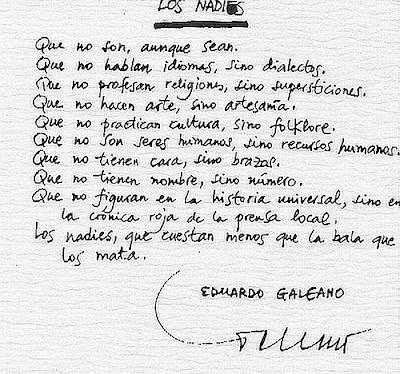 LOS NADIES
Que no son, aunque sean.
Que no hablan idiomas, sino dialectos.
Que no profesan religiones, sino supersticiones.
Que no hacen arte, sino artesanía.
Que no practican cultura, sino folklore.
Que no son seres humanos, sino recursos humanos.
Que no tienen cara, sino brazos.
Que no tienen nombre, sino número.
Que no figuran en la historia universal, sino en
la crónica roja de la prensa local.
Los nadies, que cuestan menos que la bala que
los mata.
EDUARDO GALEANO